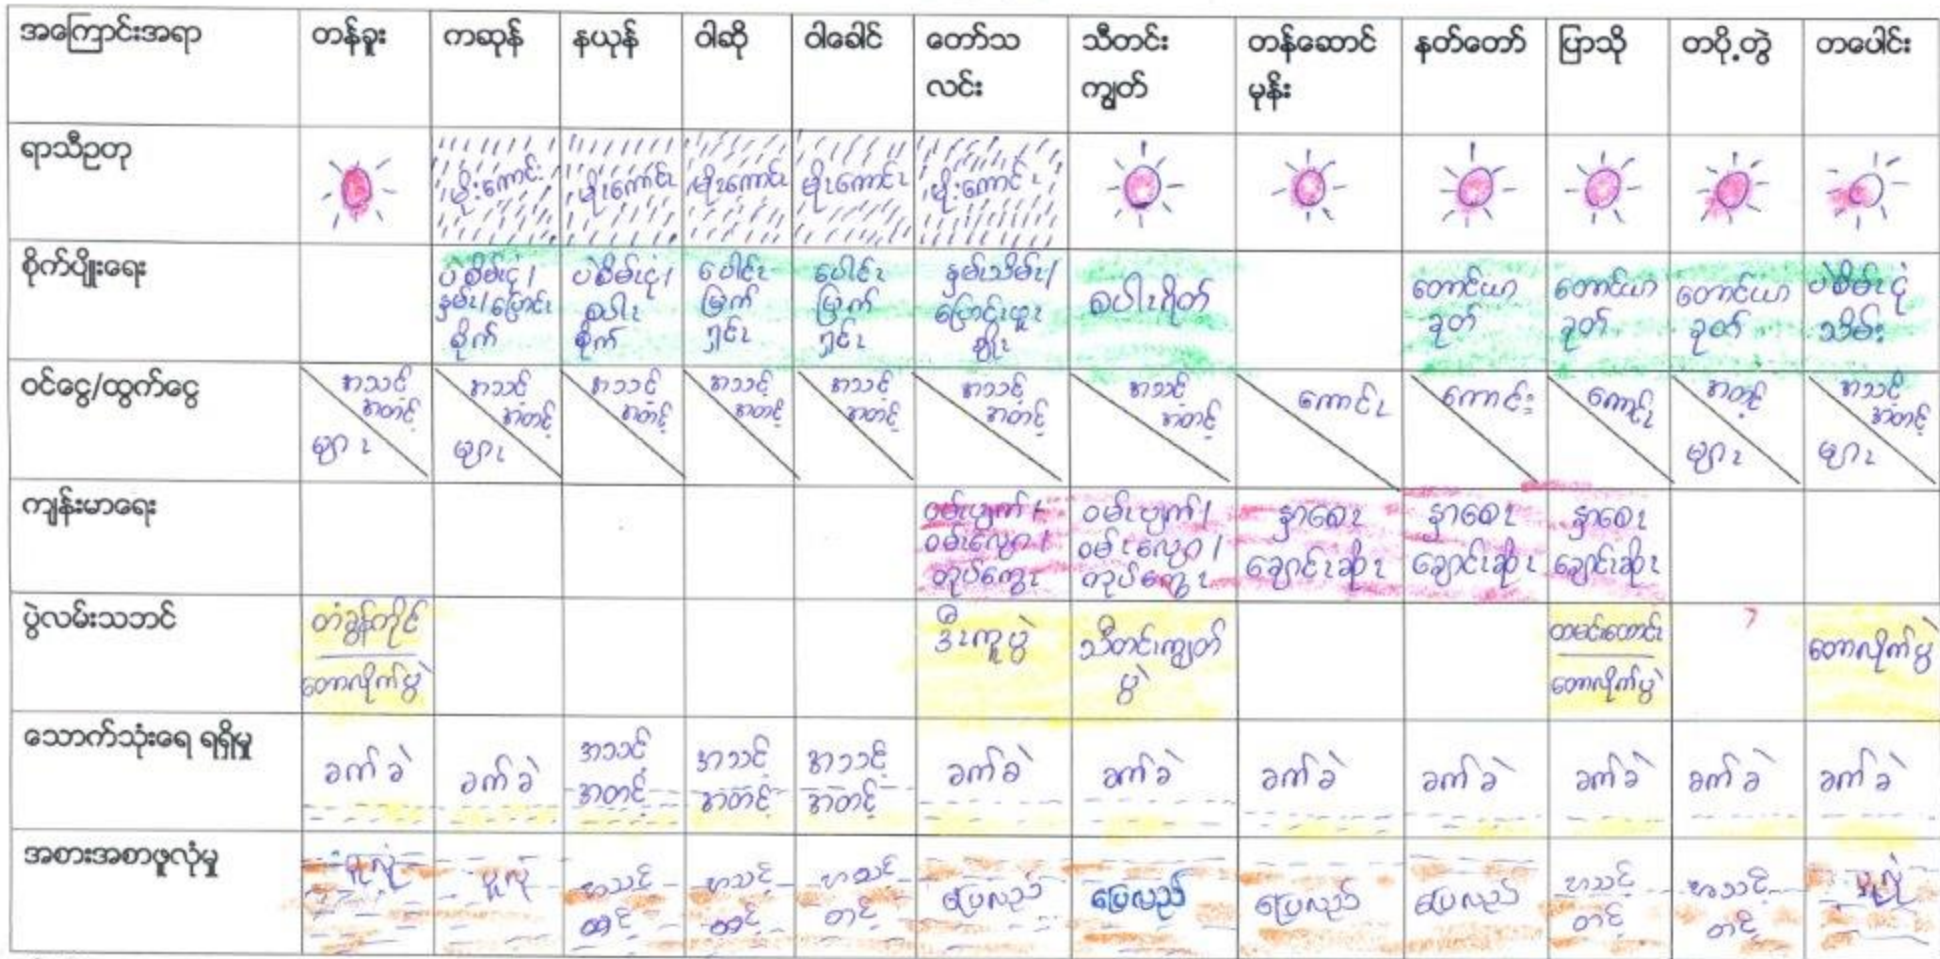 အကြောင်းအရာ တန်ခူး ကဆုန် နယုန် ဝါဆို ဝါခေါင် တော်သလင်း သီတင်းကျွတ် တန်ဆောင်မုန်း နတ်တော် ပြာသို တပို့တွဲ တပေါင်း
ရာသီဥတု မိုးကောင်း မိုးကောင်း မိုးကောင်း မိုးကောင်း မိုးကောင်း
စိုက်ပျိုးရေး ပဲစိမ်းငုံ/နှမ်း/ပြောင်းစိုက် ပဲစိမ်းငုံ/စပါးစိုက် ပေါင်းမြက်ရှင်း ပေါင်းမြက်ရှင်း နှမ်းသိမ်း/ စပါးရိတ် တောင်ယာခုတ် တောင်ယာခုတ် တောင်ယာခုတ် ပဲစိမ်းငုံသိမ်း
ဝင်ငွေ/ထွက်ငွေ အသင့်အတင့် များ အသင့်အတင့် များ အသင့်အတင့် အသင့်အတင့် အသင့်အတင့် အသင့်အတင့် အသင့်အတင့် ကောင်း ကောင်း ကောင်း အတင့် များ အသင့်အတင့် များ
ကျန်းမာရေး ဝမ်းပျက်/ဝမ်းလျော/တုပ်ကွေး ဝမ်းပျက်/ဝမ်းလျော/တုပ်ကွေး နှာစေးချောင်းဆိုး နှာစေးချောင်းဆိုး နှာစေးချောင်းဆိုး
ပွဲလမ်းသဘင် တောလိုက်ပွဲ ဒီးကူပွဲ သီတင်းကျွတ်ပွဲ တောလိုက်ပွဲ တောလိုက်ပွဲ
သောက်သုံးရေ ရရှိမှု ခက်ခဲ ခက်ခဲ အသင့်အတင့် အသင့်အတင့် အသင့်အတင့် ခက်ခဲ ခက်ခဲ ခက်ခဲ ခက်ခဲ ခက်ခဲ ခက်ခဲ ခက်ခဲ
အစားအစာဖူလုံမှု ဖူလုံ ဖူလုံ အသင့်တင့် အသင့်တင့် အသင့်တင့် ပြေလည် ပြေလည် ပြေလည် ပြေလည် အသင့်တင့် အသင့်တင့် ဖူလုံ